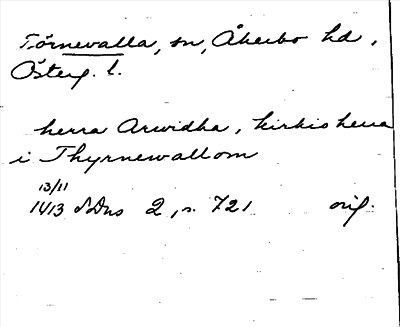 Törnevalla, sn, Åkerbo hd,
Österg. l.
herra Arwidha, kirkioherra
i Thyrnewallom
13/11
1413 SDns 2, s. 721 orig.